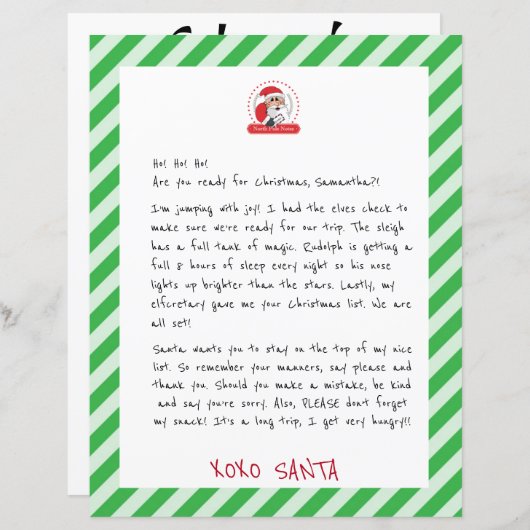 North Pole Notes
Ho! Ho! Ho!
Are you ready for Christmas, Samantha?!
I'm jumping with joy! I had the elves check to
make sure we're ready for our trip. The sleigh
has a full tank of magic. Rudolph is getting a
full 8 hours of sleep every night so his nose
lights up brighter than the stars. Lastly, my
elfcretary gave me your Christmas list. We are
all set!
Santa wants you to stay on the top of my nice
list. So remember your manners, say please and
thank you. Should you make a mistake, be kind
and say you're sorry. Also, PLEASE don't forget
my snack! It's a long trip, I get very hungry!!
XOXO SANTA